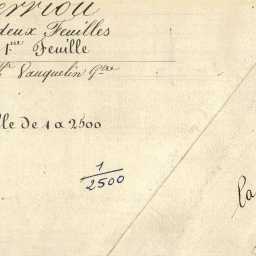 erriou
deux Feuilles
1re Feuille
Vauquelin Gre
lle de 1 a 2500
1
2500